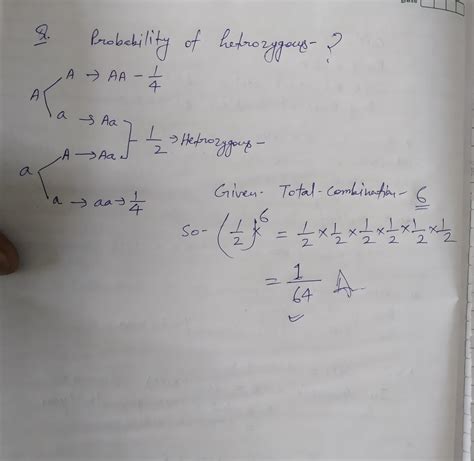 Q. Probability of hetrozygous- ?
A A → AA - 1/4
a → Aa
1/2 → Hetrozygous -
a A → Aa
a → aa → 1/4
Given- Total-Combination- 6
So- (1/2)^6 = 1/2 × 1/2 × 1/2 × 1/2 × 1/2 × 1/2
= 1/64 A